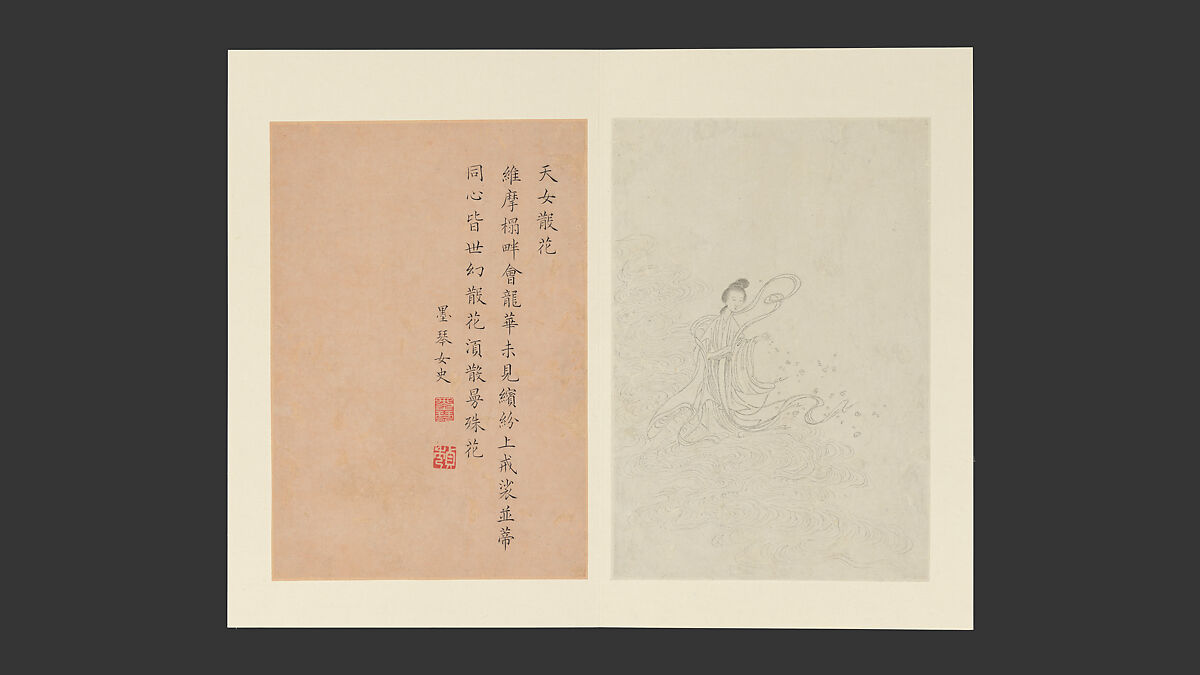 天女散花
維摩榻畔會龍華未見繽紛上戒裟並蒂
同心皆世幻散花湏散曼殊花
墨琴女史
貞秀